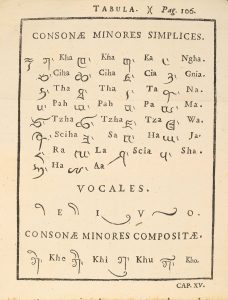 TABULA. )( Pag. 106.
CONSONÆ MINORES SIMPLICES.
ཀ Kha ཁ Kha ག Ka ང Ngha.
ཅ Ciha ཆ Ciha ཇ Cia ཉ Gnia.
ཏ Tha ཐ Tha ད Ta ན Na.
པ Pah ཕ Pah བ Pa མ Ma.
ཙ Tzha ཚ Tzha ཛ Tza ཝ Wa.
ཞ Sciha ཟ Sa འ Ha ཡ Ja.
ར Ra ལ La ཤ Scia ས Sha.
ཧ Ha ཨ Aa.
VOCALES.
E I V O.
CONSONÆ MINORES COMPOSITÆ.
ཀེ Khe ཀི Khi ཀུ Khu ཀོ Kho.
CAP. XV.